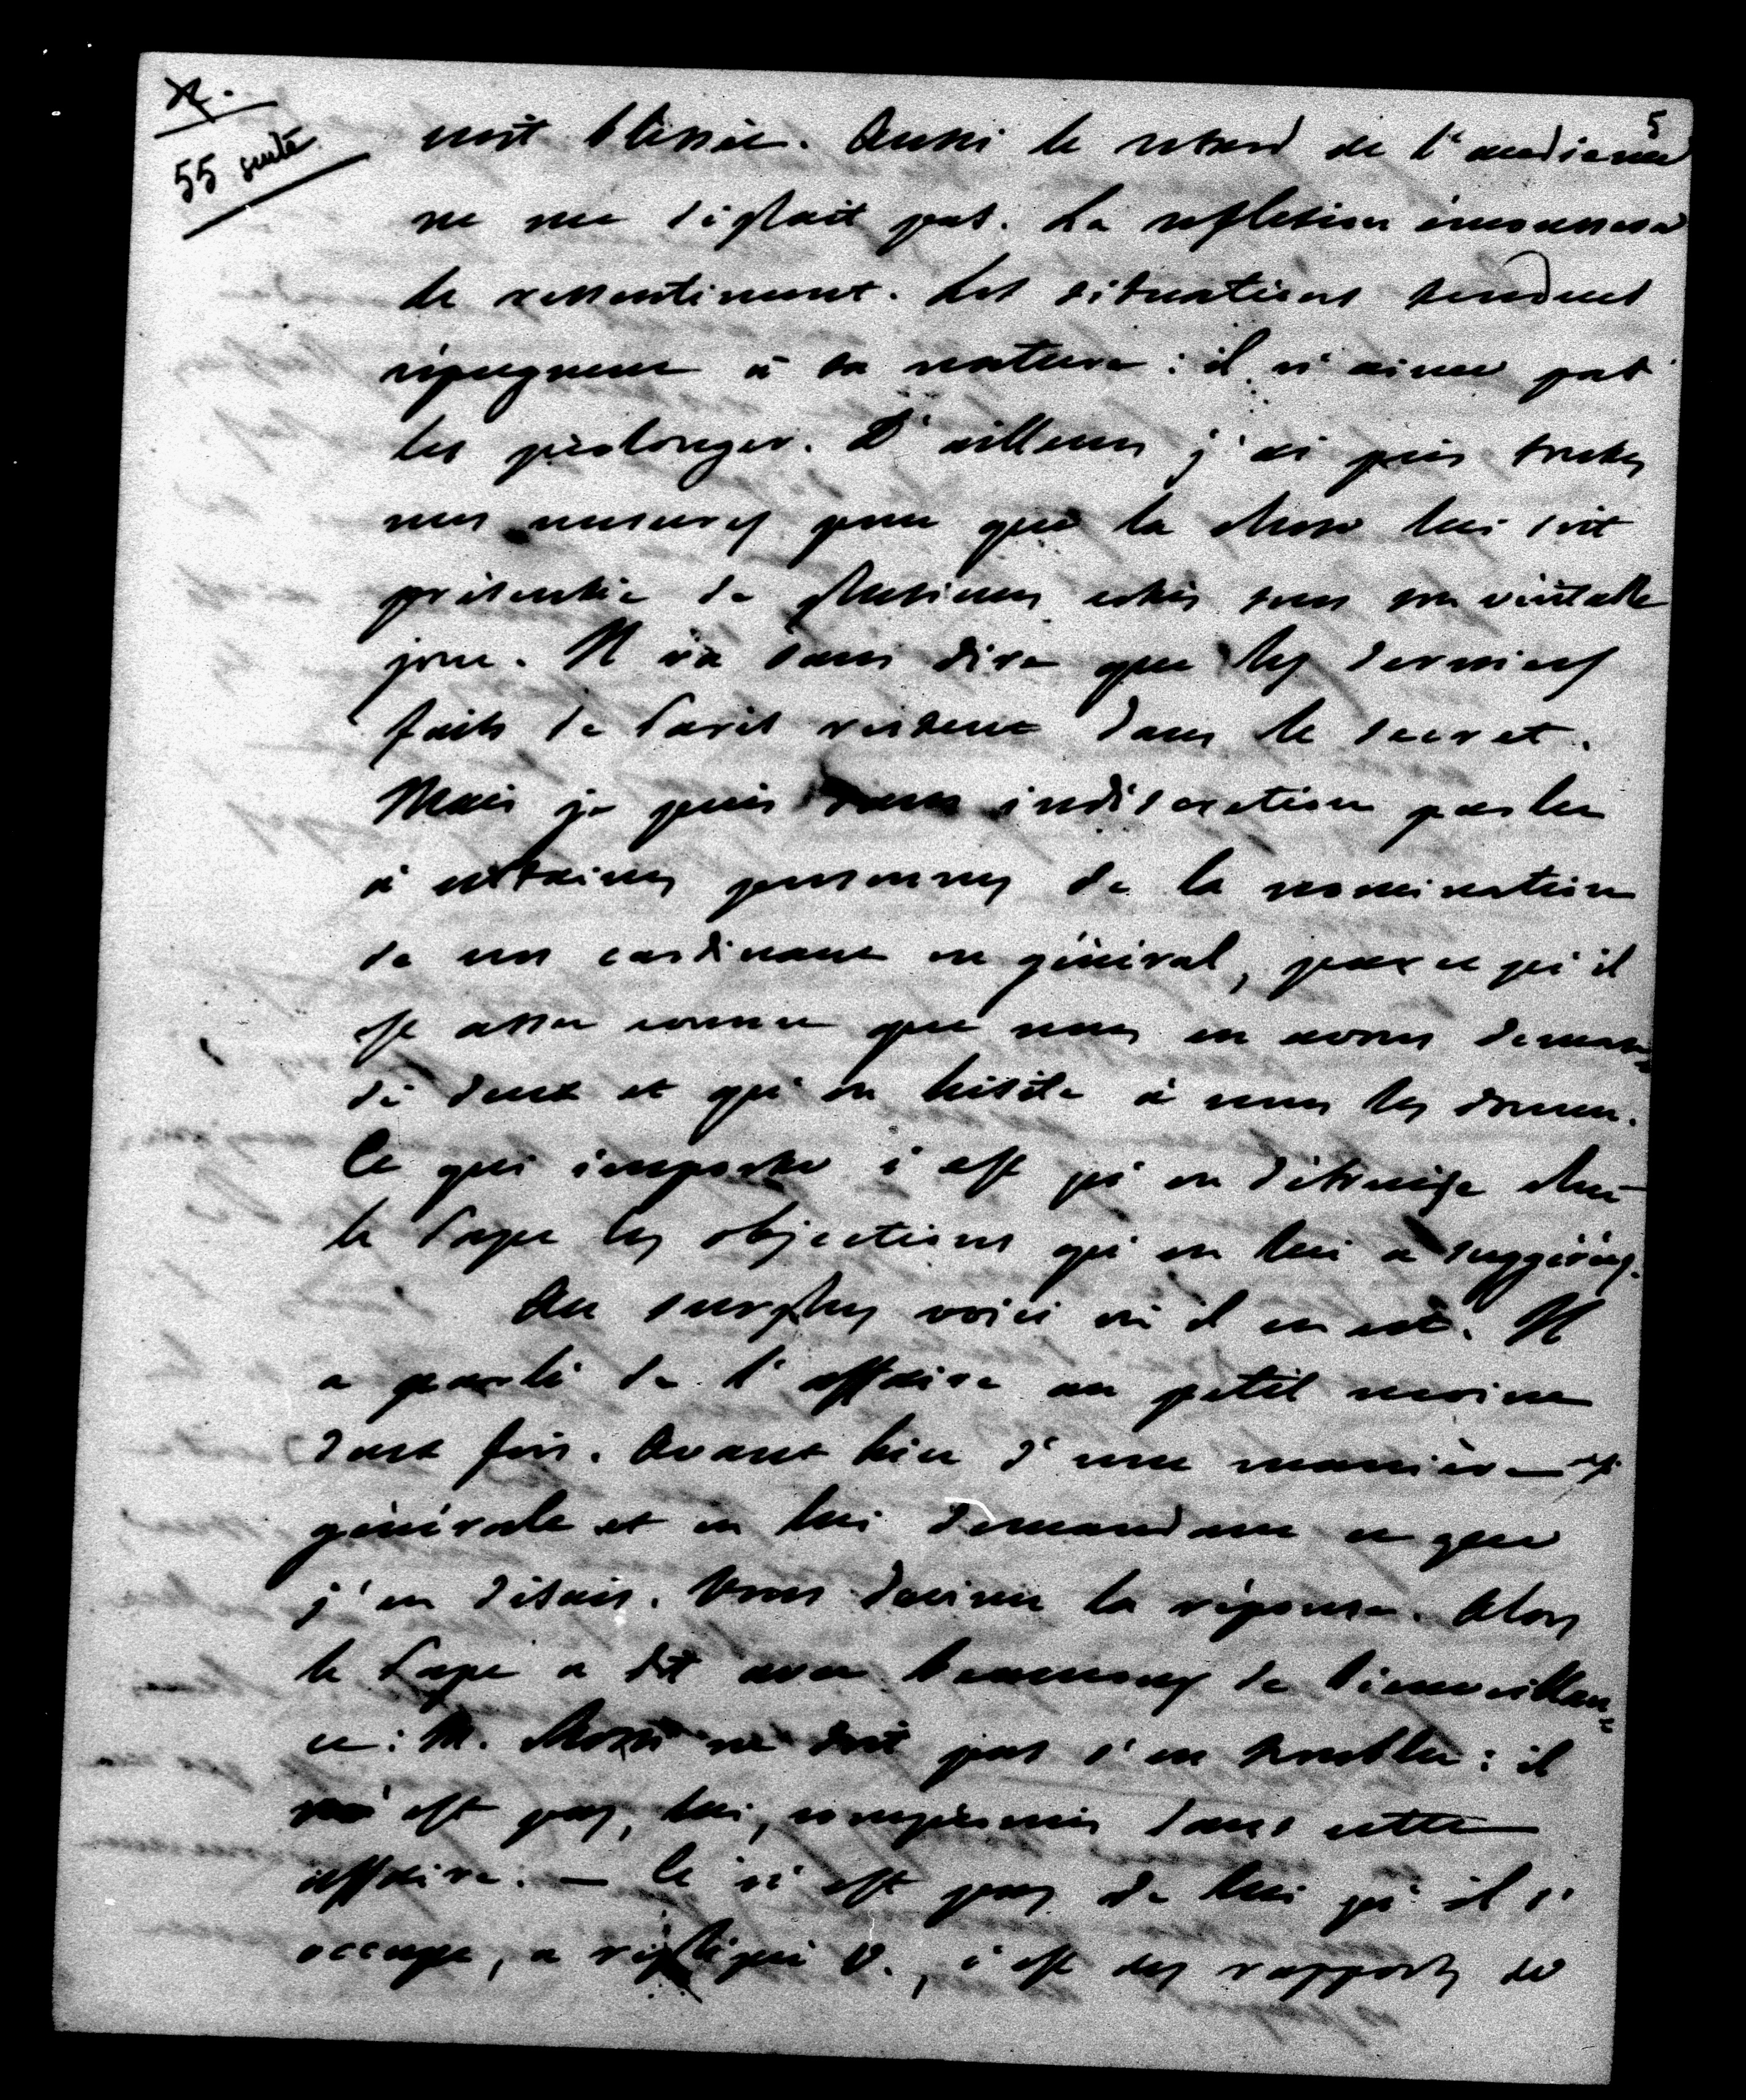 5
55 suite
soit blessée. Aussi le retard de l'audience
ne me déplait pas. La reflexion émoussera
le ressentiment. Les situations tendues
répugnent à sa nature : il n'aime pas
les prolonger. D'ailleurs j'ai pris toutes
mes mesures pour que la chose lui soit
présentée de plusieurs côtés sous son véritable
jour. Il va sans dire que les derniers
faits de Paris restent dans le secret.
Mais je puis sans indiscretion parler
à certaines personnes de la nomination
de nos cardinaux en général, parce qu'il
est assez connu que nous en avons deman=
dé deux et qu'on hésite à nous les donner.
Ce qui importe c'est qu'on détruise chez
le Pape les objections qu'on lui a suggérées.
Au surplus voici où il en est. Il
a parlé de l'affaire au petit moine
deux fois. Avant hier d'une manière
générale et en lui demandant ce que
j'en disais. Vous devinez la réponse. Alors
le Pape a dit avec beaucoup de bienveillan=
ce : M. ne doit pas s'en troubler : il
n'est pas, lui, compromis dans cette
affaire. — Ce n'est pas de lui qu'il s'
occupe, a répliqué V., c'est des rapports de